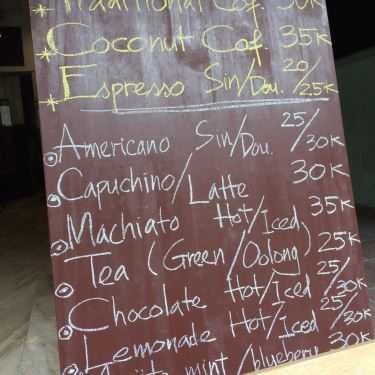 Traditional Cof. 30K
Coconut Cof. 35K
Espresso Sin/Dou. 20/25K
Americano Sin/Dou. 25/30K
Capuchino/Latte 30K
Machiato Hot/Iced 35K
Tea (Green/Oolong) 25K
Chocolate Hot/Iced 25/30K
Lemonade Hot/Iced 25/30K
mint/blueberry 30K